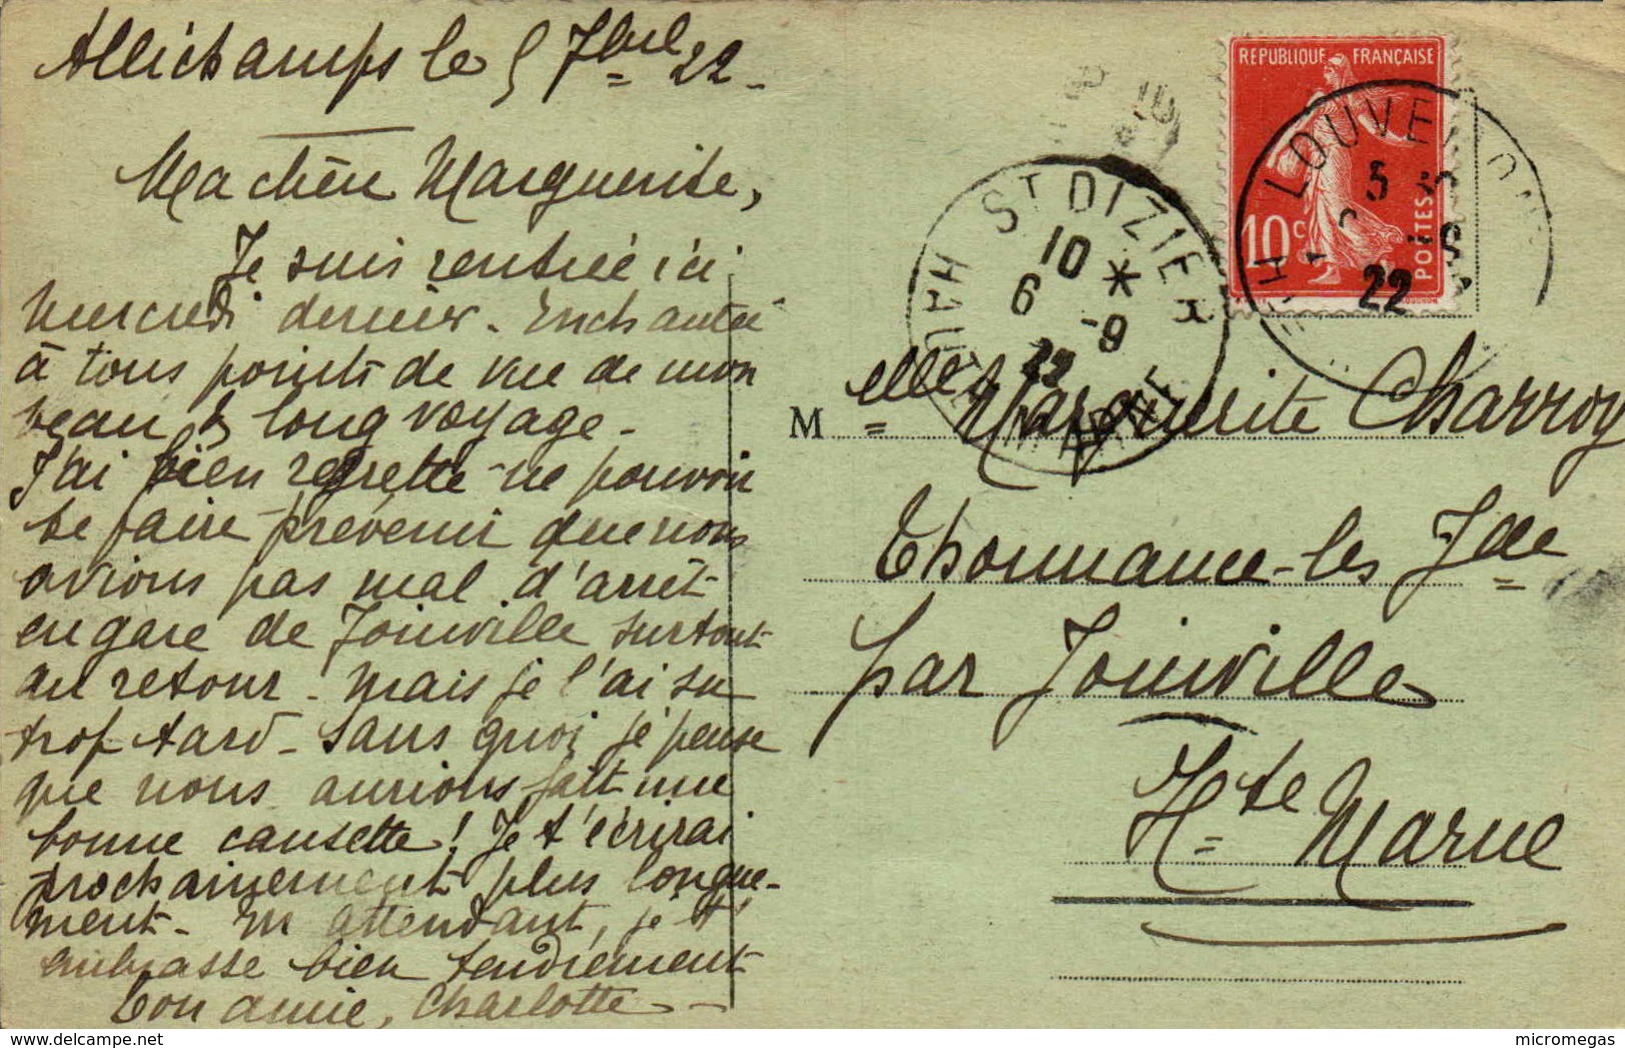 Allichamps le 5 7bre 22 -
Ma chère Marguerite,
Je suis rentrée ici
mercredi dernier - Enchantée
à tous points de vue de mon
beau & long voyage -
J'ai bien regretté ne pouvoir
te faire prévenir que nous
avions pas mal d'arrêt
en gare de Joinville surtout
au retour - mais je l'ai su
trop tard - Sans quoi je pense
que nous aurions fait une
bonne causette ! Je t'écrirai
prochainement plus longue-
ment - En attendant, je t'
embrasse bien tendrement
Ton amie, Charlotte -
REPUBLIQUE FRANÇAISE
10c
POSTES
LOUVEMONT
5
22
ST DIZIER
10 *
6 -9
22
HAUTE MARNE
Melle Marguerite Charroy
Thonnance-les-Jlle
par Joinville
Hte Marne
micromegas